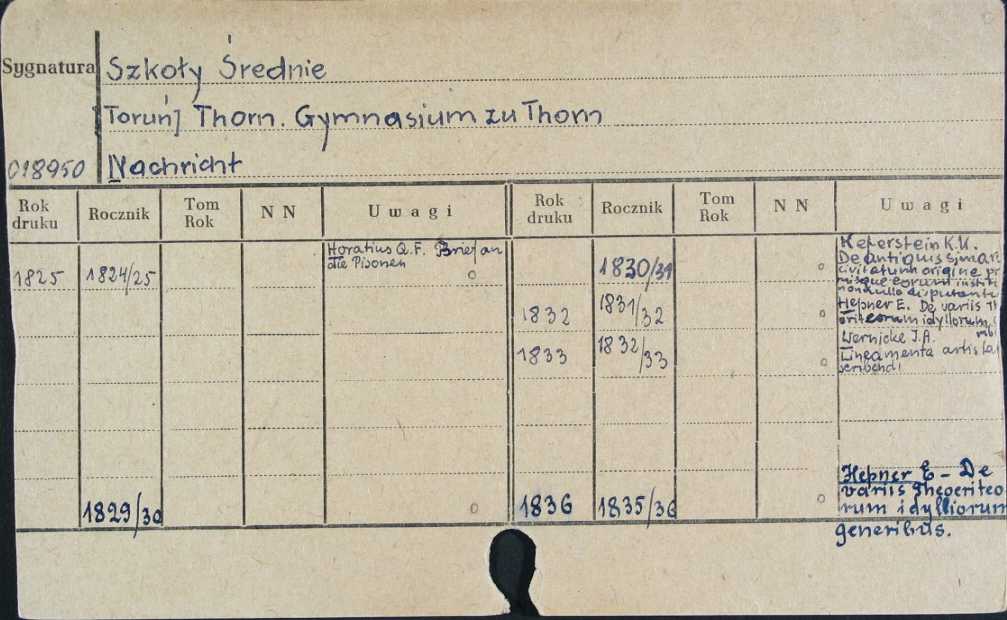 Sygnatura Szkoły Średnie
[Toruń] Thorn. Gymnasium zu Thorn
018950 Nachricht
Rok druku Rocznik Tom Rok N N Uwagi Rok druku Rocznik Tom Rok N N Uwagi
1825 1824/25 Horatius Q.F. Brief an
die Pisonen o
1830/31 o Keferstein K.U.
De antiquissimar
civitatum origine pr
misque eorum instit
nonnulla disputanta
1832 1831/32 o Hepner E. De variis Th
oriteorum idylliorum
1833 1832/33 o Wernicke J.A.
Lineamenta artis
scribendi
1829/30 o
1836 1835/36 o Hepner E - De
variis Theocriteo
rum idylliorum
generibus.